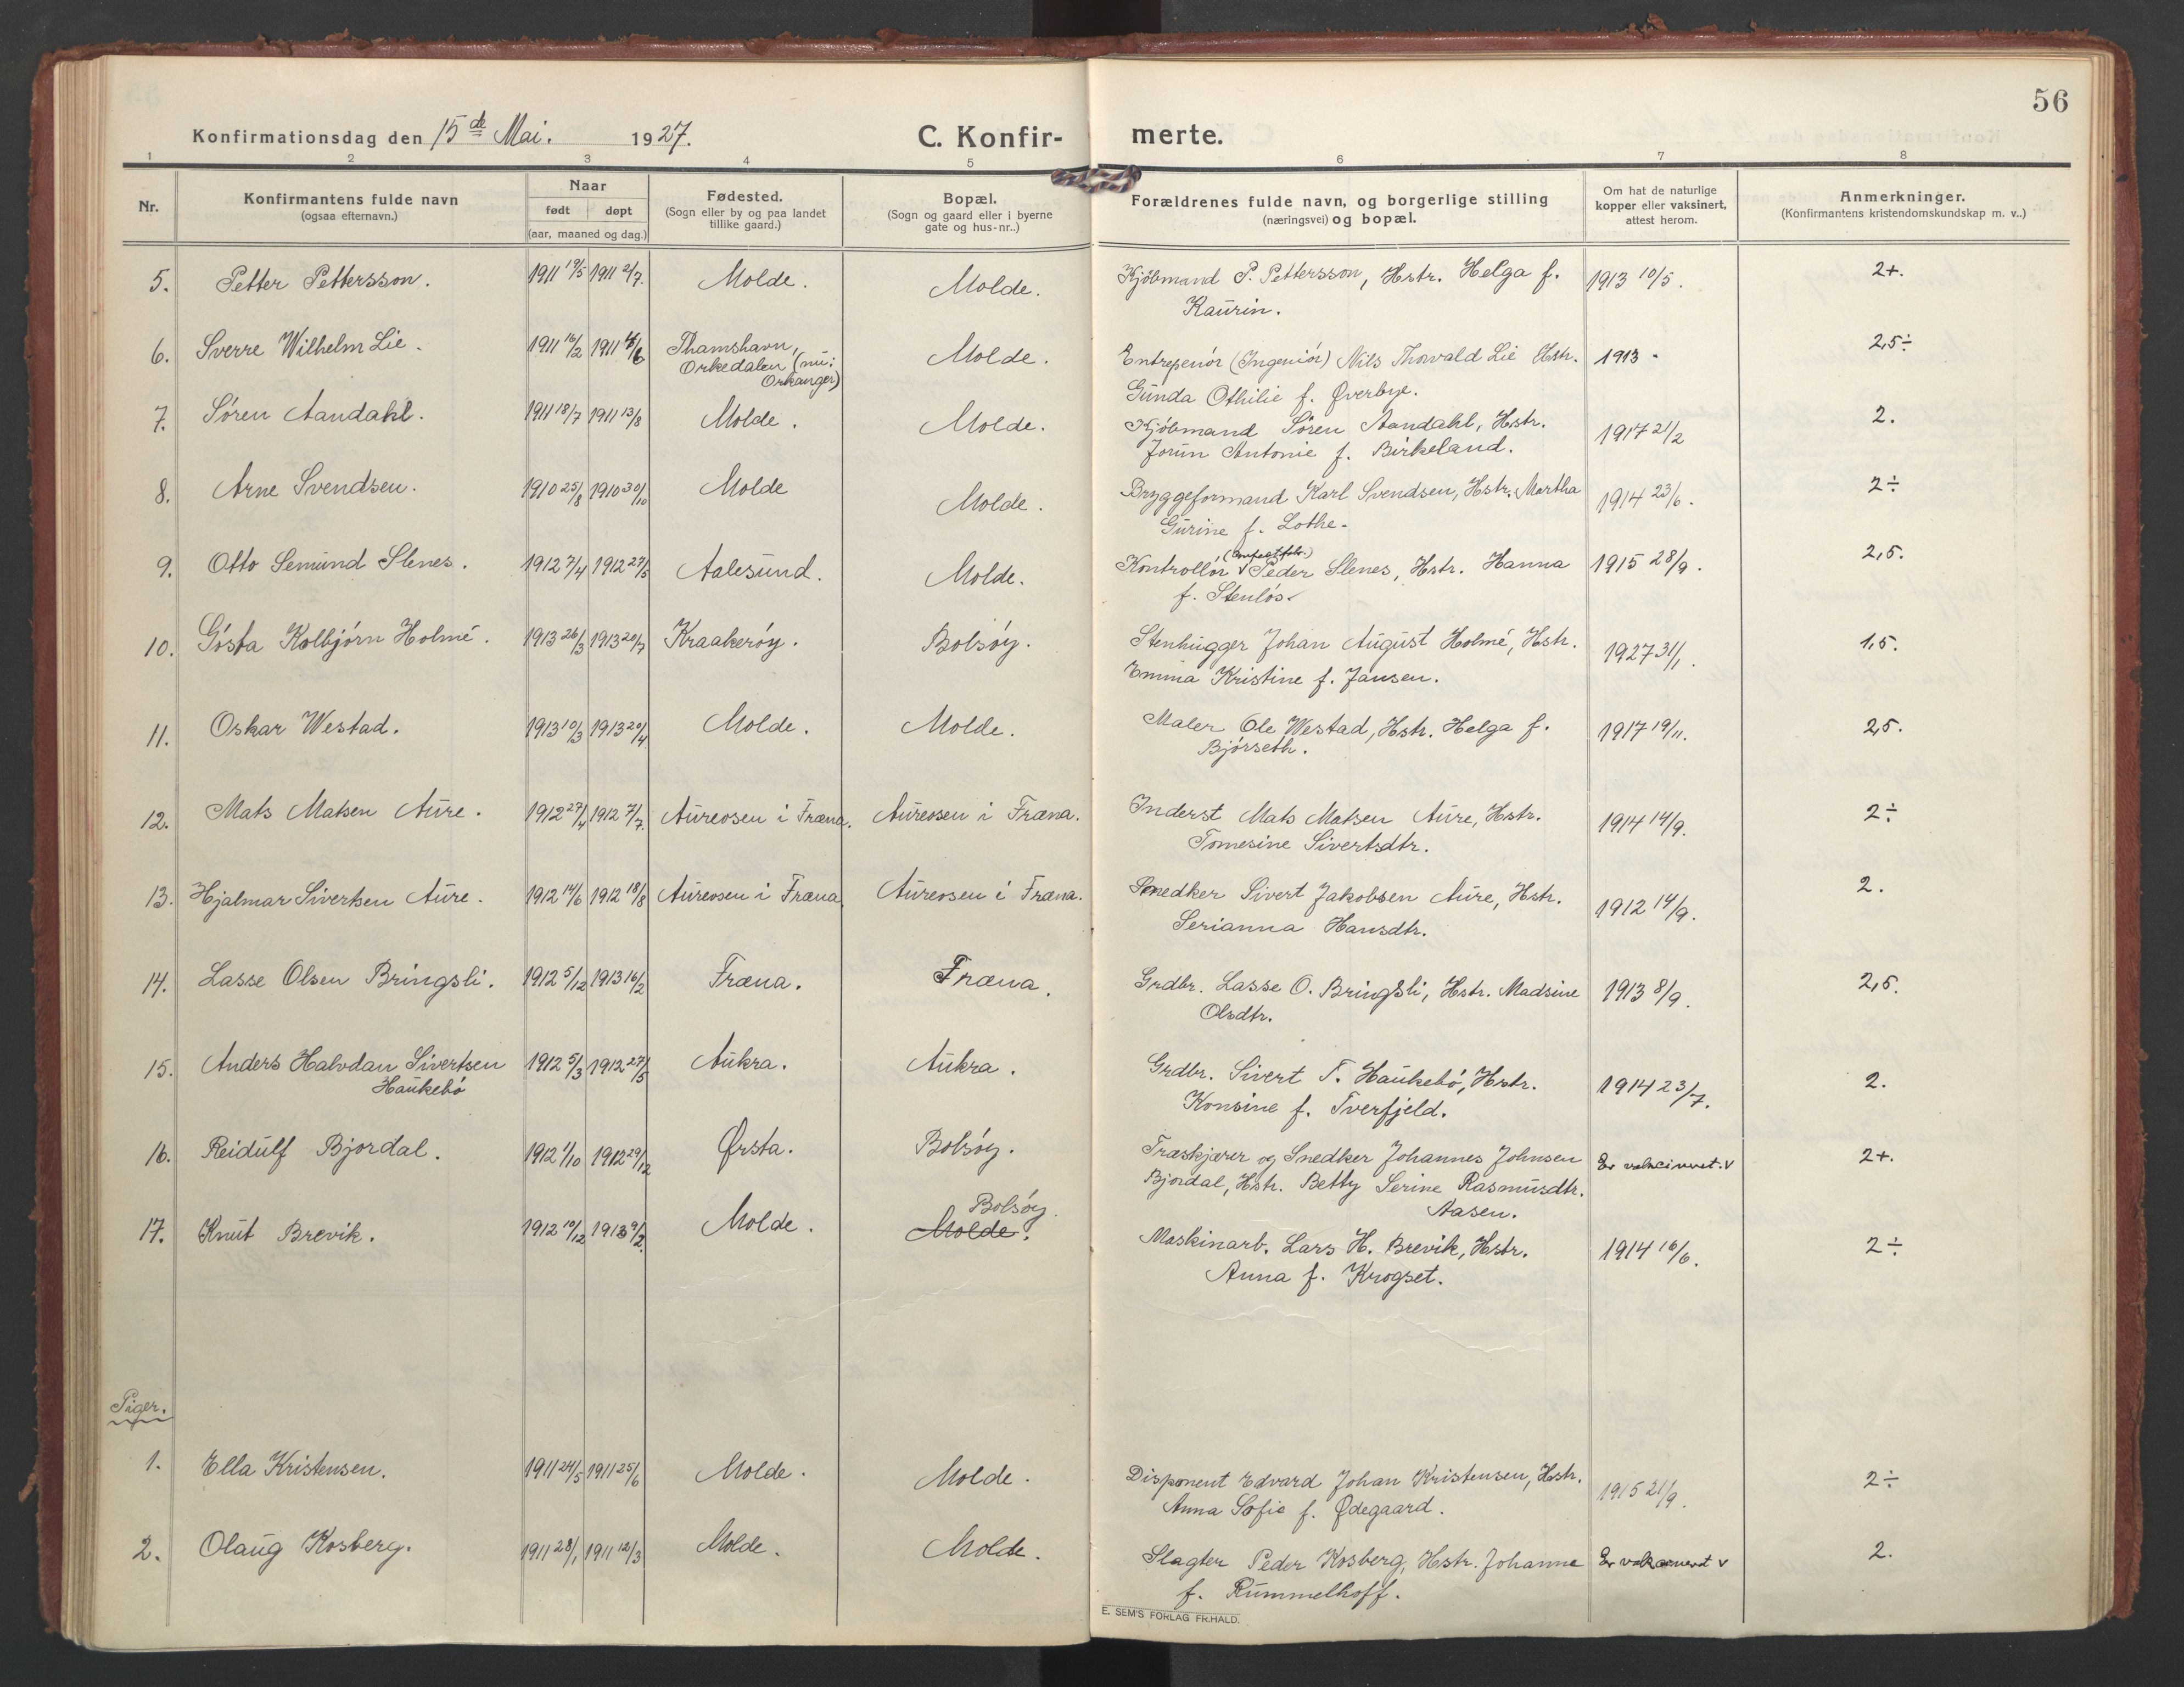 56
Konfirmationsdag den 15de Mai. 1927. C. Konfir- merte.
1 2 3 4 5 6 7 8
Nr. Konfirmantens fulde navn (ogsaa efternavn.) Naar født døpt (aar, maaned og dag.) Fødested. (Sogn eller by og paa landet tillike gaard.) Bopæl. (Sogn og gaard eller i byerne gate og hus-nr..) Forældrenes fulde navn, og borgerlige stilling (næringsvei) og bopæl. Om hat de naturlige kopper eller vaksinert, attest herom. Anmerkninger. (Konfirmantens kristendomskundskap m. v..)
5. Petter Pettersson. 1911 19/5 1911 2/7. Molde. Molde. Kjöbmand P. Pettersson, Hstr. Helga f. 1913 10/5. 2+.
Kaurin.
6. Sverre Wilhelm Lie. 1911 16/2 1911 /6 Thamshavn, Molde. Entrepenör (Ingeniör) Nils Thorvald Lie Hstr. 1913 - 2,5÷
Orkedalen (nu: Gunda Othilie f. Øverbye.
Orkanger)
7. Sören Aandahl. 1911 18/7 1911 13/8 Molde. Molde. Kjöbmand Sören Aandahl, Hstr. 1917 21/2 2.
Jorun Antonie f. Birkeland.
8. Arne Svendsen. 1910 25/8 1910 30/10 Molde Molde. Bryggeformand Karl Svendsen, Hstr. Martha 1914 23/6. 2÷
Gurine f. Lothe.
9. Otto Semund Slenes. 1912 7/4 1912 27/5 Aalesund. Molde. Kontrollör Peder Slenes, Hstr. Hanna 1915 28/9. 2,5.
f. Stenlös.
10. Gösta Kolbjörn Holmé. 1913 26/3 1913 20/7 Kraakeröy. Bolsöy. Stenhugger Johan August Holmé, Hstr. 1927 31/1. 1,5.
Emma Kristine f. Jansen.
11. Oskar Westad. 1913 10/3 1913 20/4 Molde. Molde. Maler Ole Westad, Hstr. Helga f. 1917 19/11. 2,5.
Björseth.
12. Mats Matsen Aure. 1912 27/4 1912 7/7. Aureosen i Fræna. Aureosen i Fræna. Inderst Mats Matsen Aure, Hstr. 1914 14/9. 2÷
Tomesine Sivertsdtr.
13. Hjalmar Sivertsen Aure. 1912 14/6 1912 18/8 Aureosen i Fræna Aureosen i Fræna. Snedker Sivert Jakobsen Aure, Hstr. 1912 14/9. 2.
Serianna Hansdtr.
14. Lasse Olsen Bringsli. 1912 5/12 1913 16/2 Fræna. Fræna. Grdbr. Lasse O. Bringsli, Hstr. Madsine 1913 8/9. 2,5.
Olsdtr.
15. Anders Halvdan Sivertsen 1912 5/3 1912 27/5 Aukra. Aukra. Grdbr. Sivert T. Haukebö, Hstr. 1914 23/7. 2.
Haukebö Konsine f. Tverfjeld.
16. Reidulf Bjordal. 1912 1/10 1912 29/12 Ørsta. Bolsöy. Træskjærer og Snedker Johannes Johnsen Er vakcineret. v 2+.
Bjordal, Hstr. Betty Serine Rasmusdtr.
Aasen.
Bolsöy.
17. Knut Brevik. 1912 10/12 1913 9/2. Molde. Molde. Maskinarb. Lars H. Brevik, Hstr. 1914 16/6. 2÷
Anna f. Krogset.
Piger.
1. Ella Kristensen. 1911 24/5 1911 25/6 Molde. Molde. Disponent Edvard Johan Kristensen, Hstr. 1915 21/9. 2÷
Anna Sofie f. Ødegaard.
2. Olaug Kosberg. 1911 28/1 1911 12/3 Molde. Molde. Slagter Peder Kosberg, Hstr. Johanne Er vakcineret v 2.
f. Rummelhoff.
E. SEM'S FORLAG FR.HALD.